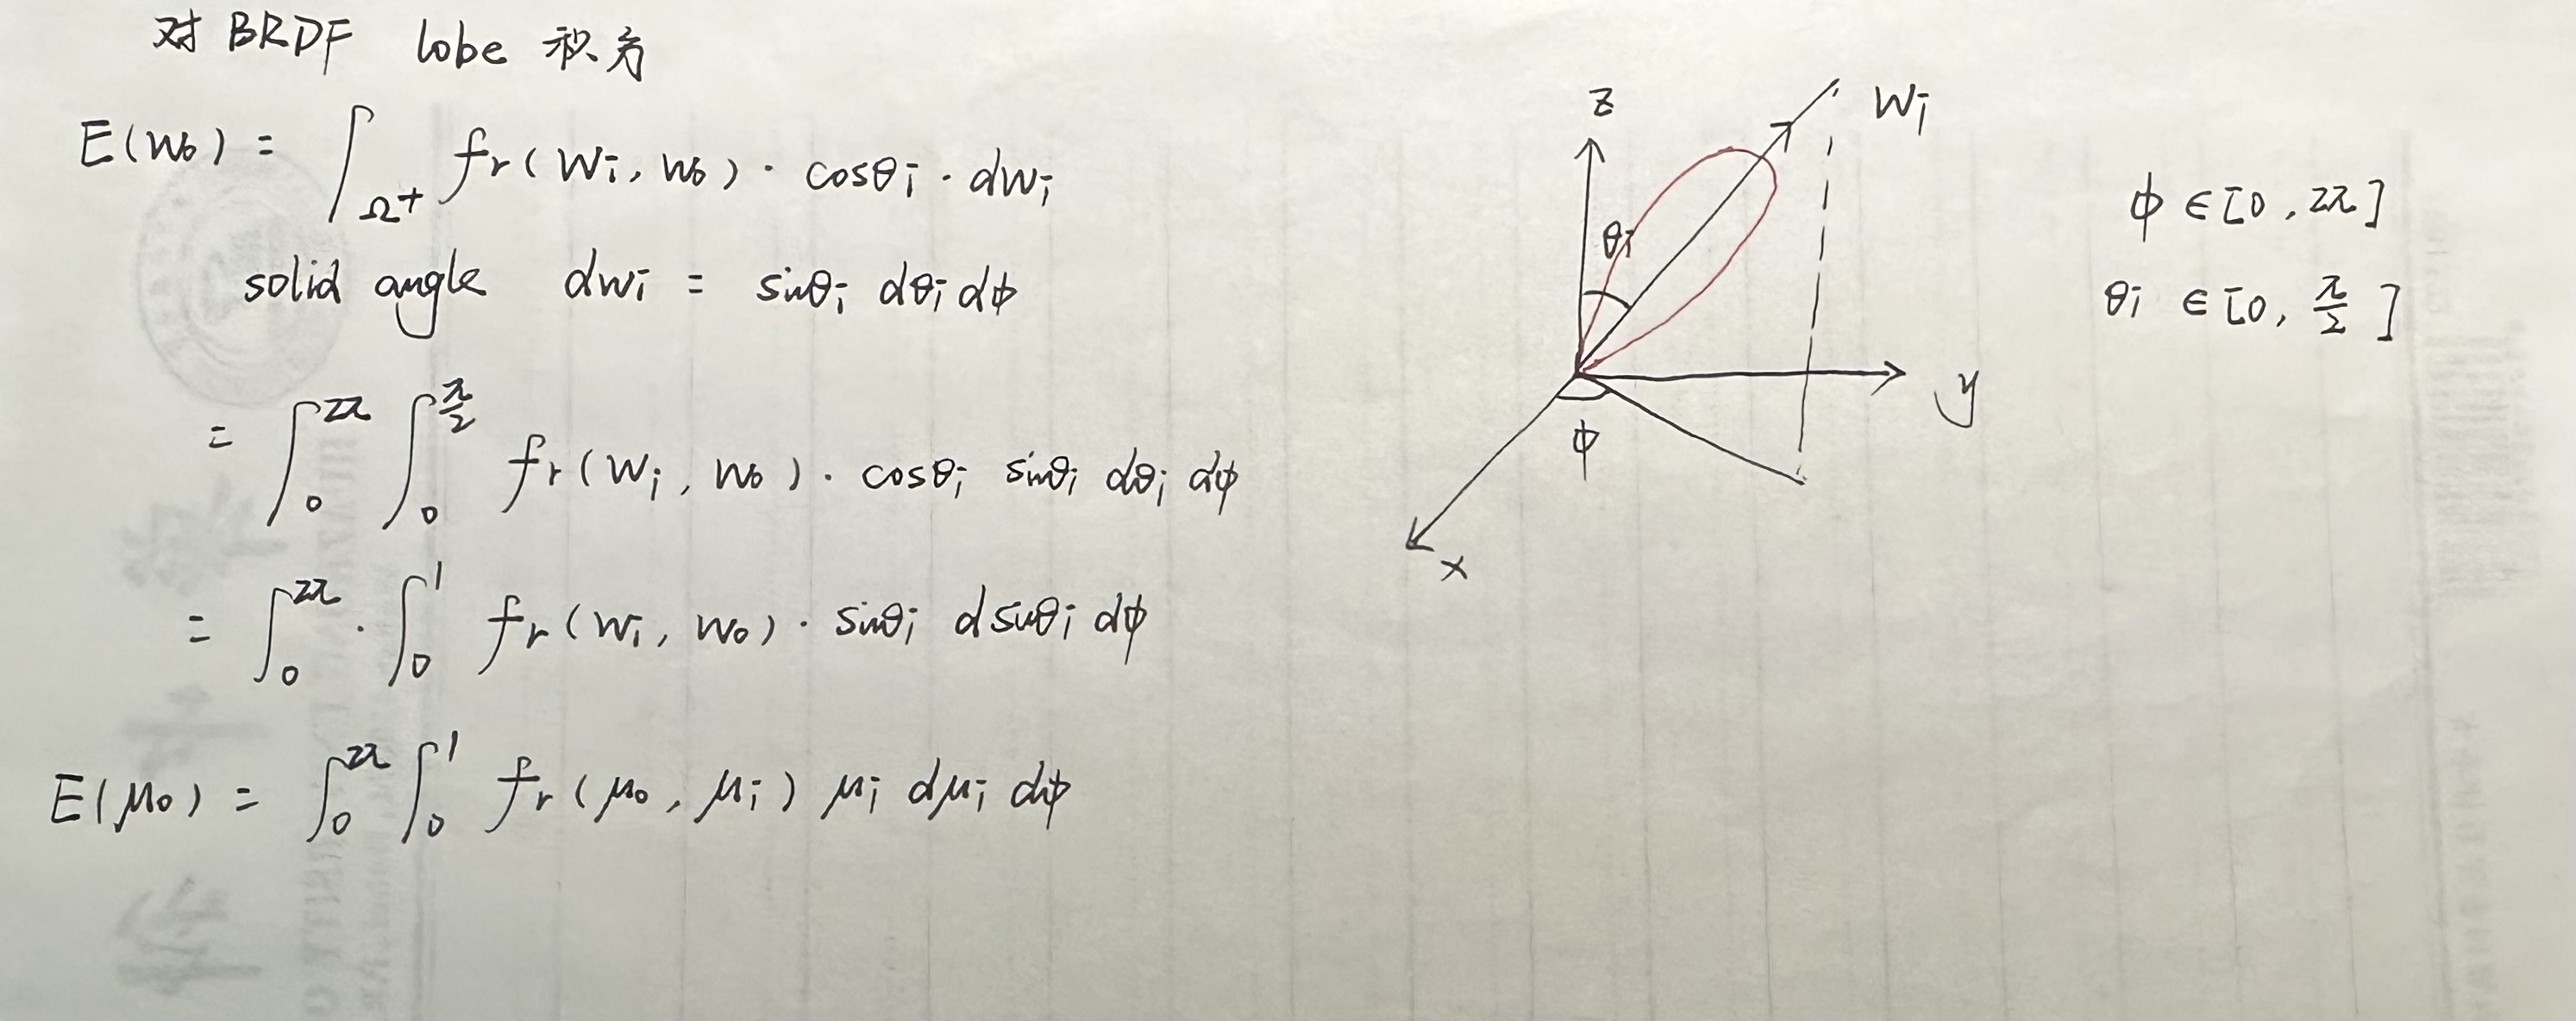 对 BRDF lobe 积分
E(w₀) = ∫_Ω⁺ fr(wi, w₀) · cosθi · dwi
solid angle dwi = sinθi dθi dϕ
= ∫₀^2π ∫₀^π/2 fr(wi, w₀) · cosθi sinθi dθi dϕ
= ∫₀^2π · ∫₀^1 fr(wi, w₀) · sinθi dsinθi dϕ
E(μ₀) = ∫₀^2π ∫₀^1 fr(μ₀, μi) μi dμi dϕ
z
wi
θi
y
ϕ
x
ϕ ∈ [0, 2π]
θi ∈ [0, π/2]